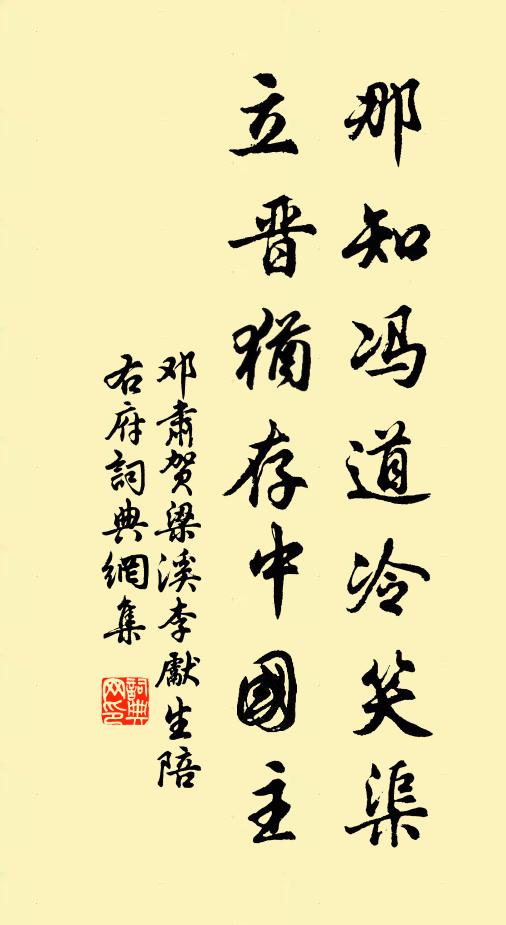 那知冯道冷笑渠
立晋猶存中國主
邓肃贺梁溪李獻生陪
右府詞典網集
詞典网印